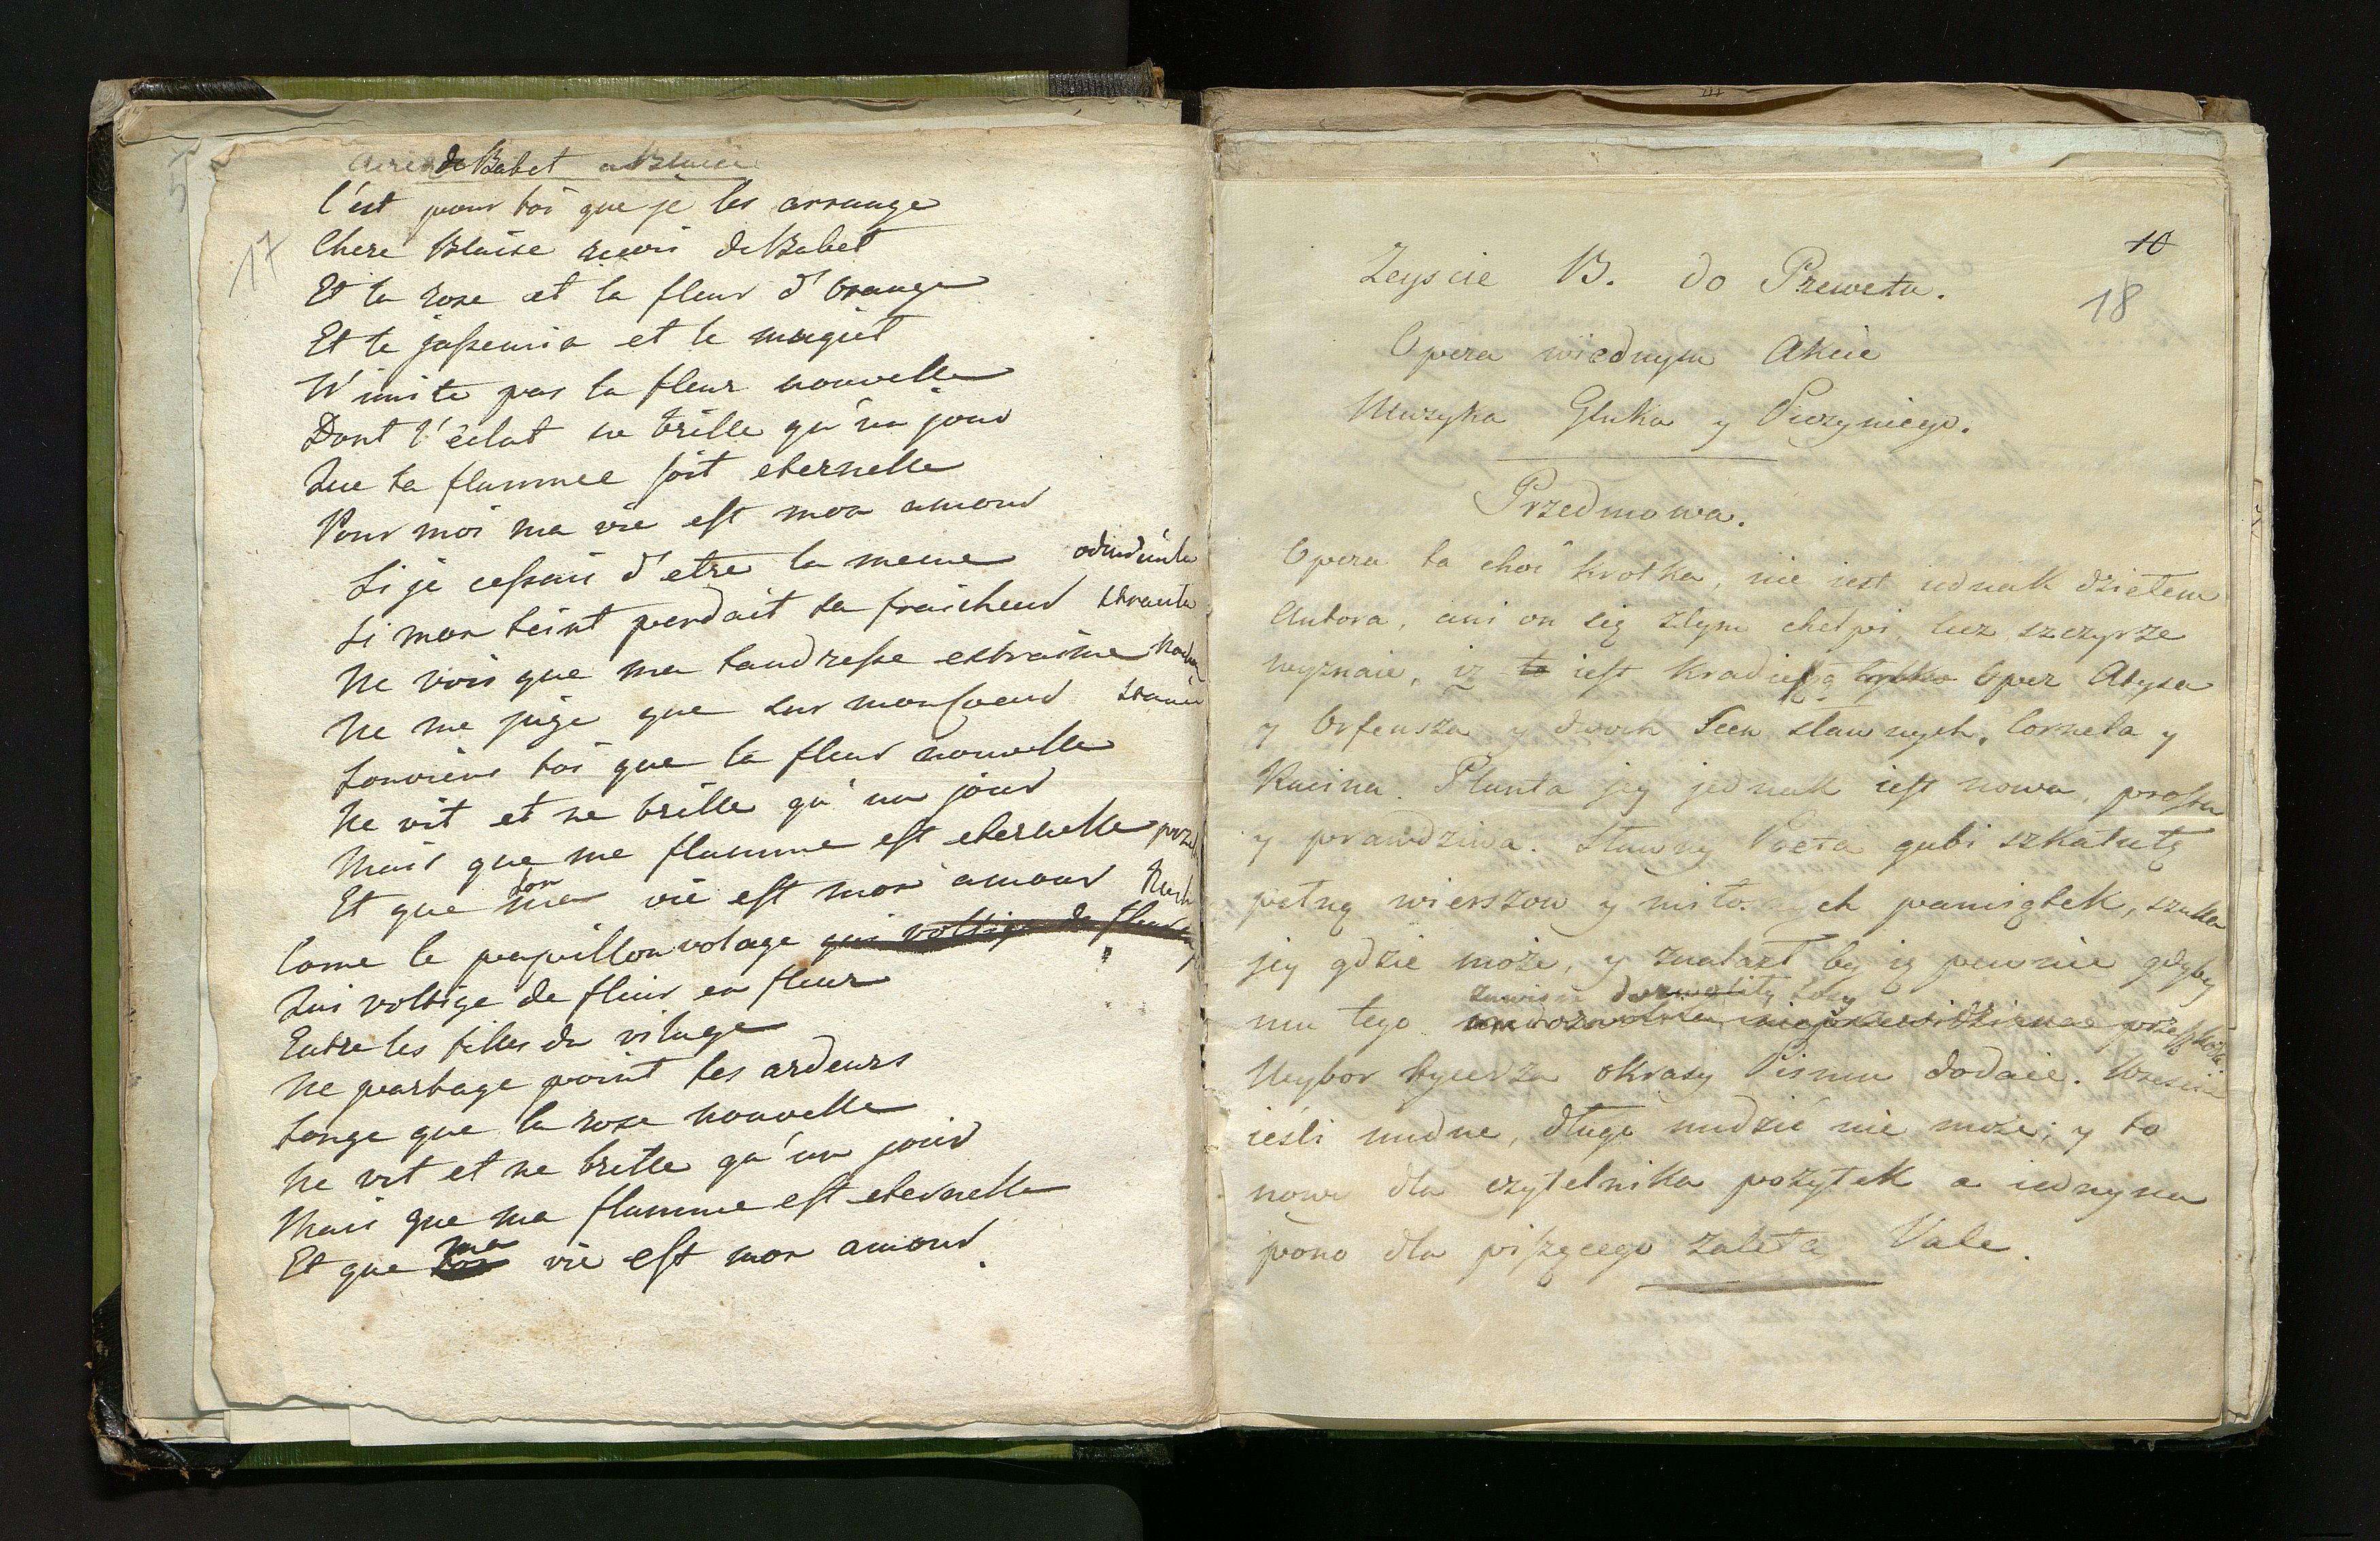 de Babet a Blaise
C'est pour toi que je les arrange
Chere Blaise recois de Babet
Et la rose et la fleur d'Orange
Et le jassemin et le muguet
N'imite pas la fleur nouvelle
Dont l'éclat ne brille qu'un jour
Que ta flammee soit eternelle
Pour moi ma vie est mon amour
Si je cessais d'etre la meme
Si mon teint perdait sa fraicheur
Ne vois que ma tandresse extraime
Ne me juge que sur mon Coeur
Souviens toi que la fleur nouvelle
Ne vit et ne brille qu'un jour
Mais que me flamme est eternelle
Et que ma ton vie est mon amour
Come le papillon volage qui voltige de fleur
Qui voltige de fleur en fleur
Entre les filles du vilage
Ne partage point tes ardeurs
Songe que la rose nouvelle
Ne vit et ne brille qu'un jour
Mais que ma flamme est eternelle
Et que ma vie est mon amour.
17
10
18
Zeyscie B. do Preweta.
Opera wiednym Akcie
Muzyka Gluka y Piczyniego.
Przedmowa.
Opera ta choć krotka, nie iest iednak dziełem
Autora, ani on się z tym chełpi, lecz szczyrze
wyznaie, iz to iest kradzieszą tylko Oper Atysa
y Orfeusza y dwoch Scen sławnych, Cornela y
Racina. Planta jey jednak iest nowa, prosta
y prawdziwa. Sławny Poeta gubi szkatułę
pełną wierszow y miłosnych pamiątek, szuka
jey gdzie może, y znalazł by ią pewnie gdyby
zawisne dozwoliły losy
mu tego nieprzewidziane przeszkod
Wybor Rycerza okrasy Pismu dodaie. Wreście
ieśli nudne, długo nudzić nie może; y to
nowy dla czytelnika pożytek a iedyna
pono dla piszącego zaleta Vale.